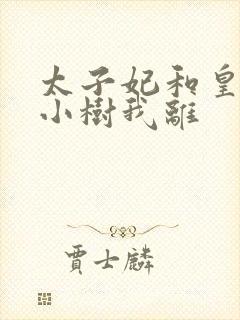 太子妃和皇
小樹我離
賈士麟